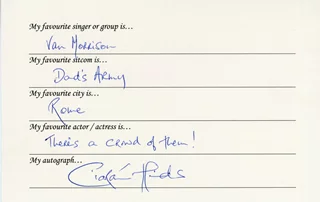 My favourite singer or group is...
Van Morrison
My favourite sitcom is...
Dad's Army
My favourite city is...
Rome
My favourite actor / actress is...
There's a crowd of them!
My autograph...
Ciarán Hinds